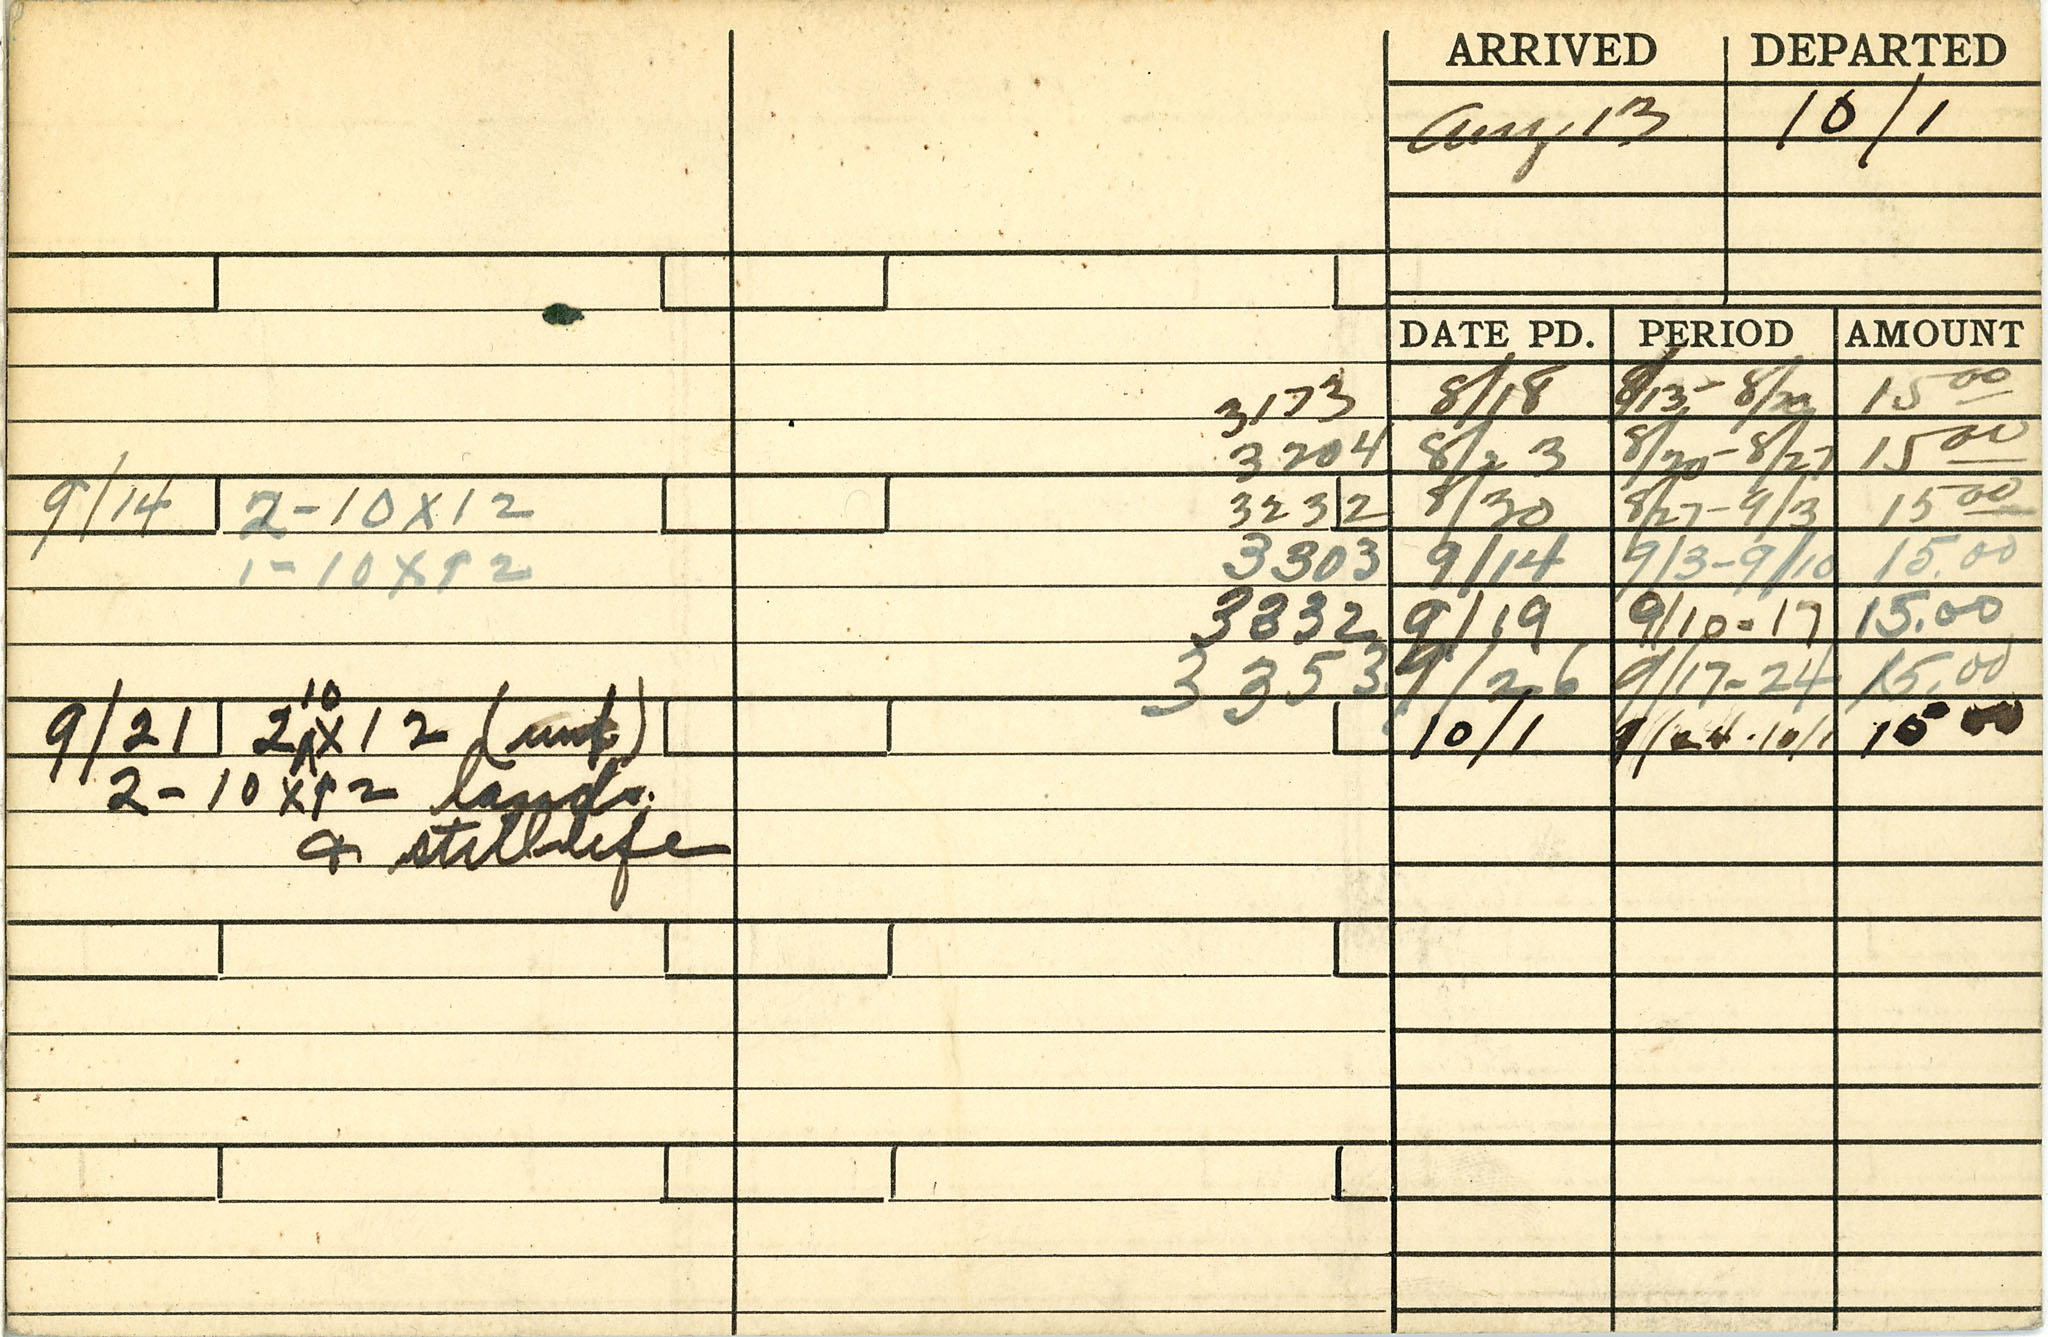 ARRIVED DEPARTED
Aug, 13 10/1
DATE PD. PERIOD AMOUNT
3173 8/18 8/13- 8/20 15 00
3204 8/23 8/20-8/27 15 00
9/14 2-10X12 3232 8/30 8/27-9/3 15 00
1-10X12 3303 9/14 9/3-9/10 15.00
3332 9/19 9/10-17 15.00
3353 9/26 9/17-24 15.00
9/21 2 10 X12 (unf) 10/1 9/24-10/1 15 00
2-10X12 lands.
& still-life